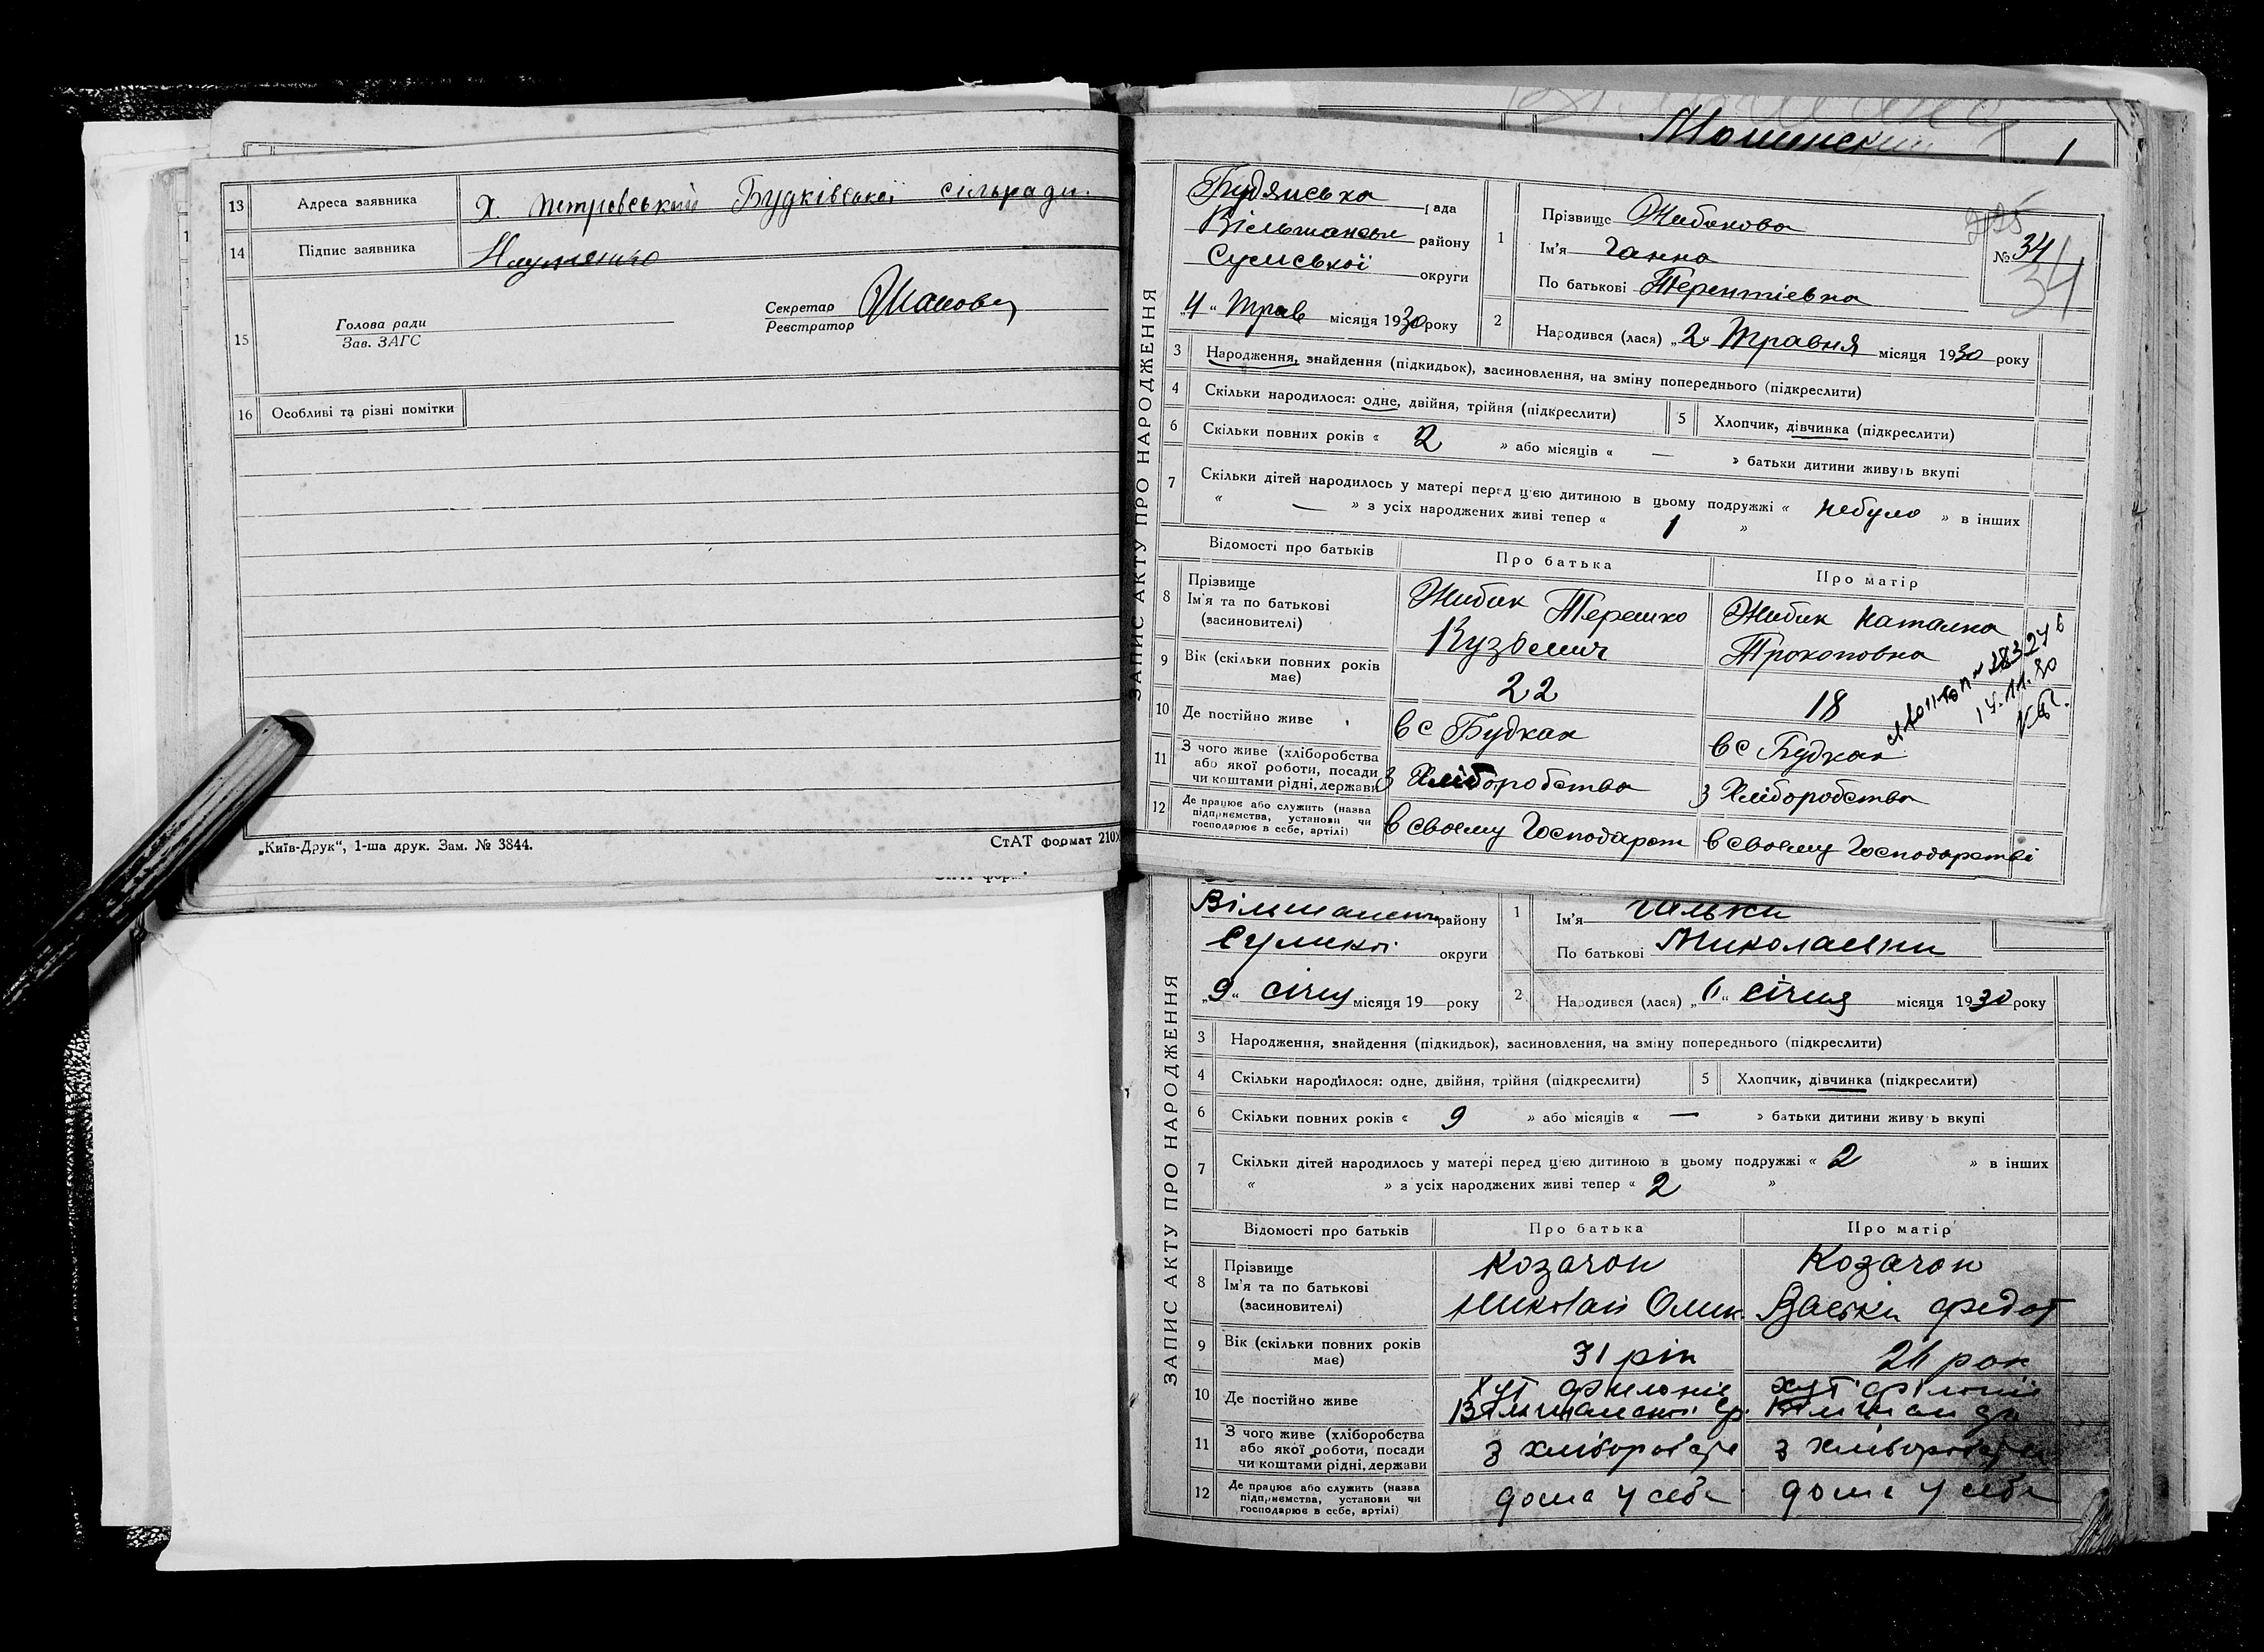 13 Адреса заявника Х. Петровський Будківської сільради.
14 Підпис заявника Науменко
15 Голова ради
Зав. ЗАГС
Секретар
Реєстратор
16 Особливі та різні помітки
„Київ-Друк“, 1-ша друк. Зам. № 3844.
СтАТ формат 210
1
ЗАПИС АКТУ ПРО НАРОДЖЕННЯ
Будянська рада
Вільшанськ району
Сумської округи
„4“ Трав місяця 1930 року
1 Прізвище
Ім'я Ганна
По батькові Терентіевна
№ 34
34
2 Народився (лася) „2“ Травня місяця 1930 року
3 Народження, знайдення (підкидьок), засиновлення, на зміну попереднього (підкреслити)
4 Скільки народилося: одне, двійня, трійня (підкреслити)
5 Хлопчик, дівчинка (підкреслити)
6 Скільки повних років « 2 » або місяців « — » батьки дитини живуть вкупі
7 Скільки дітей народилось у матері перед цією дитиною в цьому подружжі « небуло » в інших
« — » з усіх народжених живі тепер « 1 »
Відомості про батьків Про батька Про матір
8 Прізвище
Ім'я та по батькові
(засиновителі)
Жибик Терешко
Кузьмич
Жибик Наталка
Прокоповна
9 Вік (скільки повних років
має)
22 18
10 Де постійно живе в с Будках в с Будках
11 З чого живе (хліборобства
або якої роботи, посади
чи коштами рідні, держави
з Хліборобства з Хліборобства
12 Де працює або служить (назва
підприємства, установи чи
господарює в себе, артілі)
в своему Господарст в своему Господарстві
ЗАПИС АКТУ ПРО НАРОДЖЕННЯ
району
округи
„9“ січня місяця 19 — року
1 Ім'я Гальки
По батькові Миколаевни
2 Народився (лася) січня місяця 1930 року
3 Народження, знайдення (підкидьок), засиновлення, на зміну попереднього (підкреслити)
4 Скільки народилося: одне, двійня, трійня (підкреслити)
5 Хлопчик, дівчинка (підкреслити)
6 Скільки повних років « 9 » або місяців « — » батьки дитини живуть вкупі
7 Скільки дітей народилось у матері перед цією дитиною в цьому подружжі « 2 » в інших
« » з усіх народжених живі тепер « 2 »
Відомості про батьків Про батька Про матір
8 Прізвище
Ім'я та по батькові
(засиновителі)
Козачок
Николай Омик.
Козачок
Федот
9 Вік (скільки повних років
має)
31 рік рок
10 Де постійно живе
хут
хут
11 З чого живе (хліборобства
або якої роботи, посади
чи коштами рідні, держави
з хліборобств з хліборобств
12 Де працює або служить (назва
підприємства, установи чи
господарює в себе, артілі)
дома у себе дома у себе